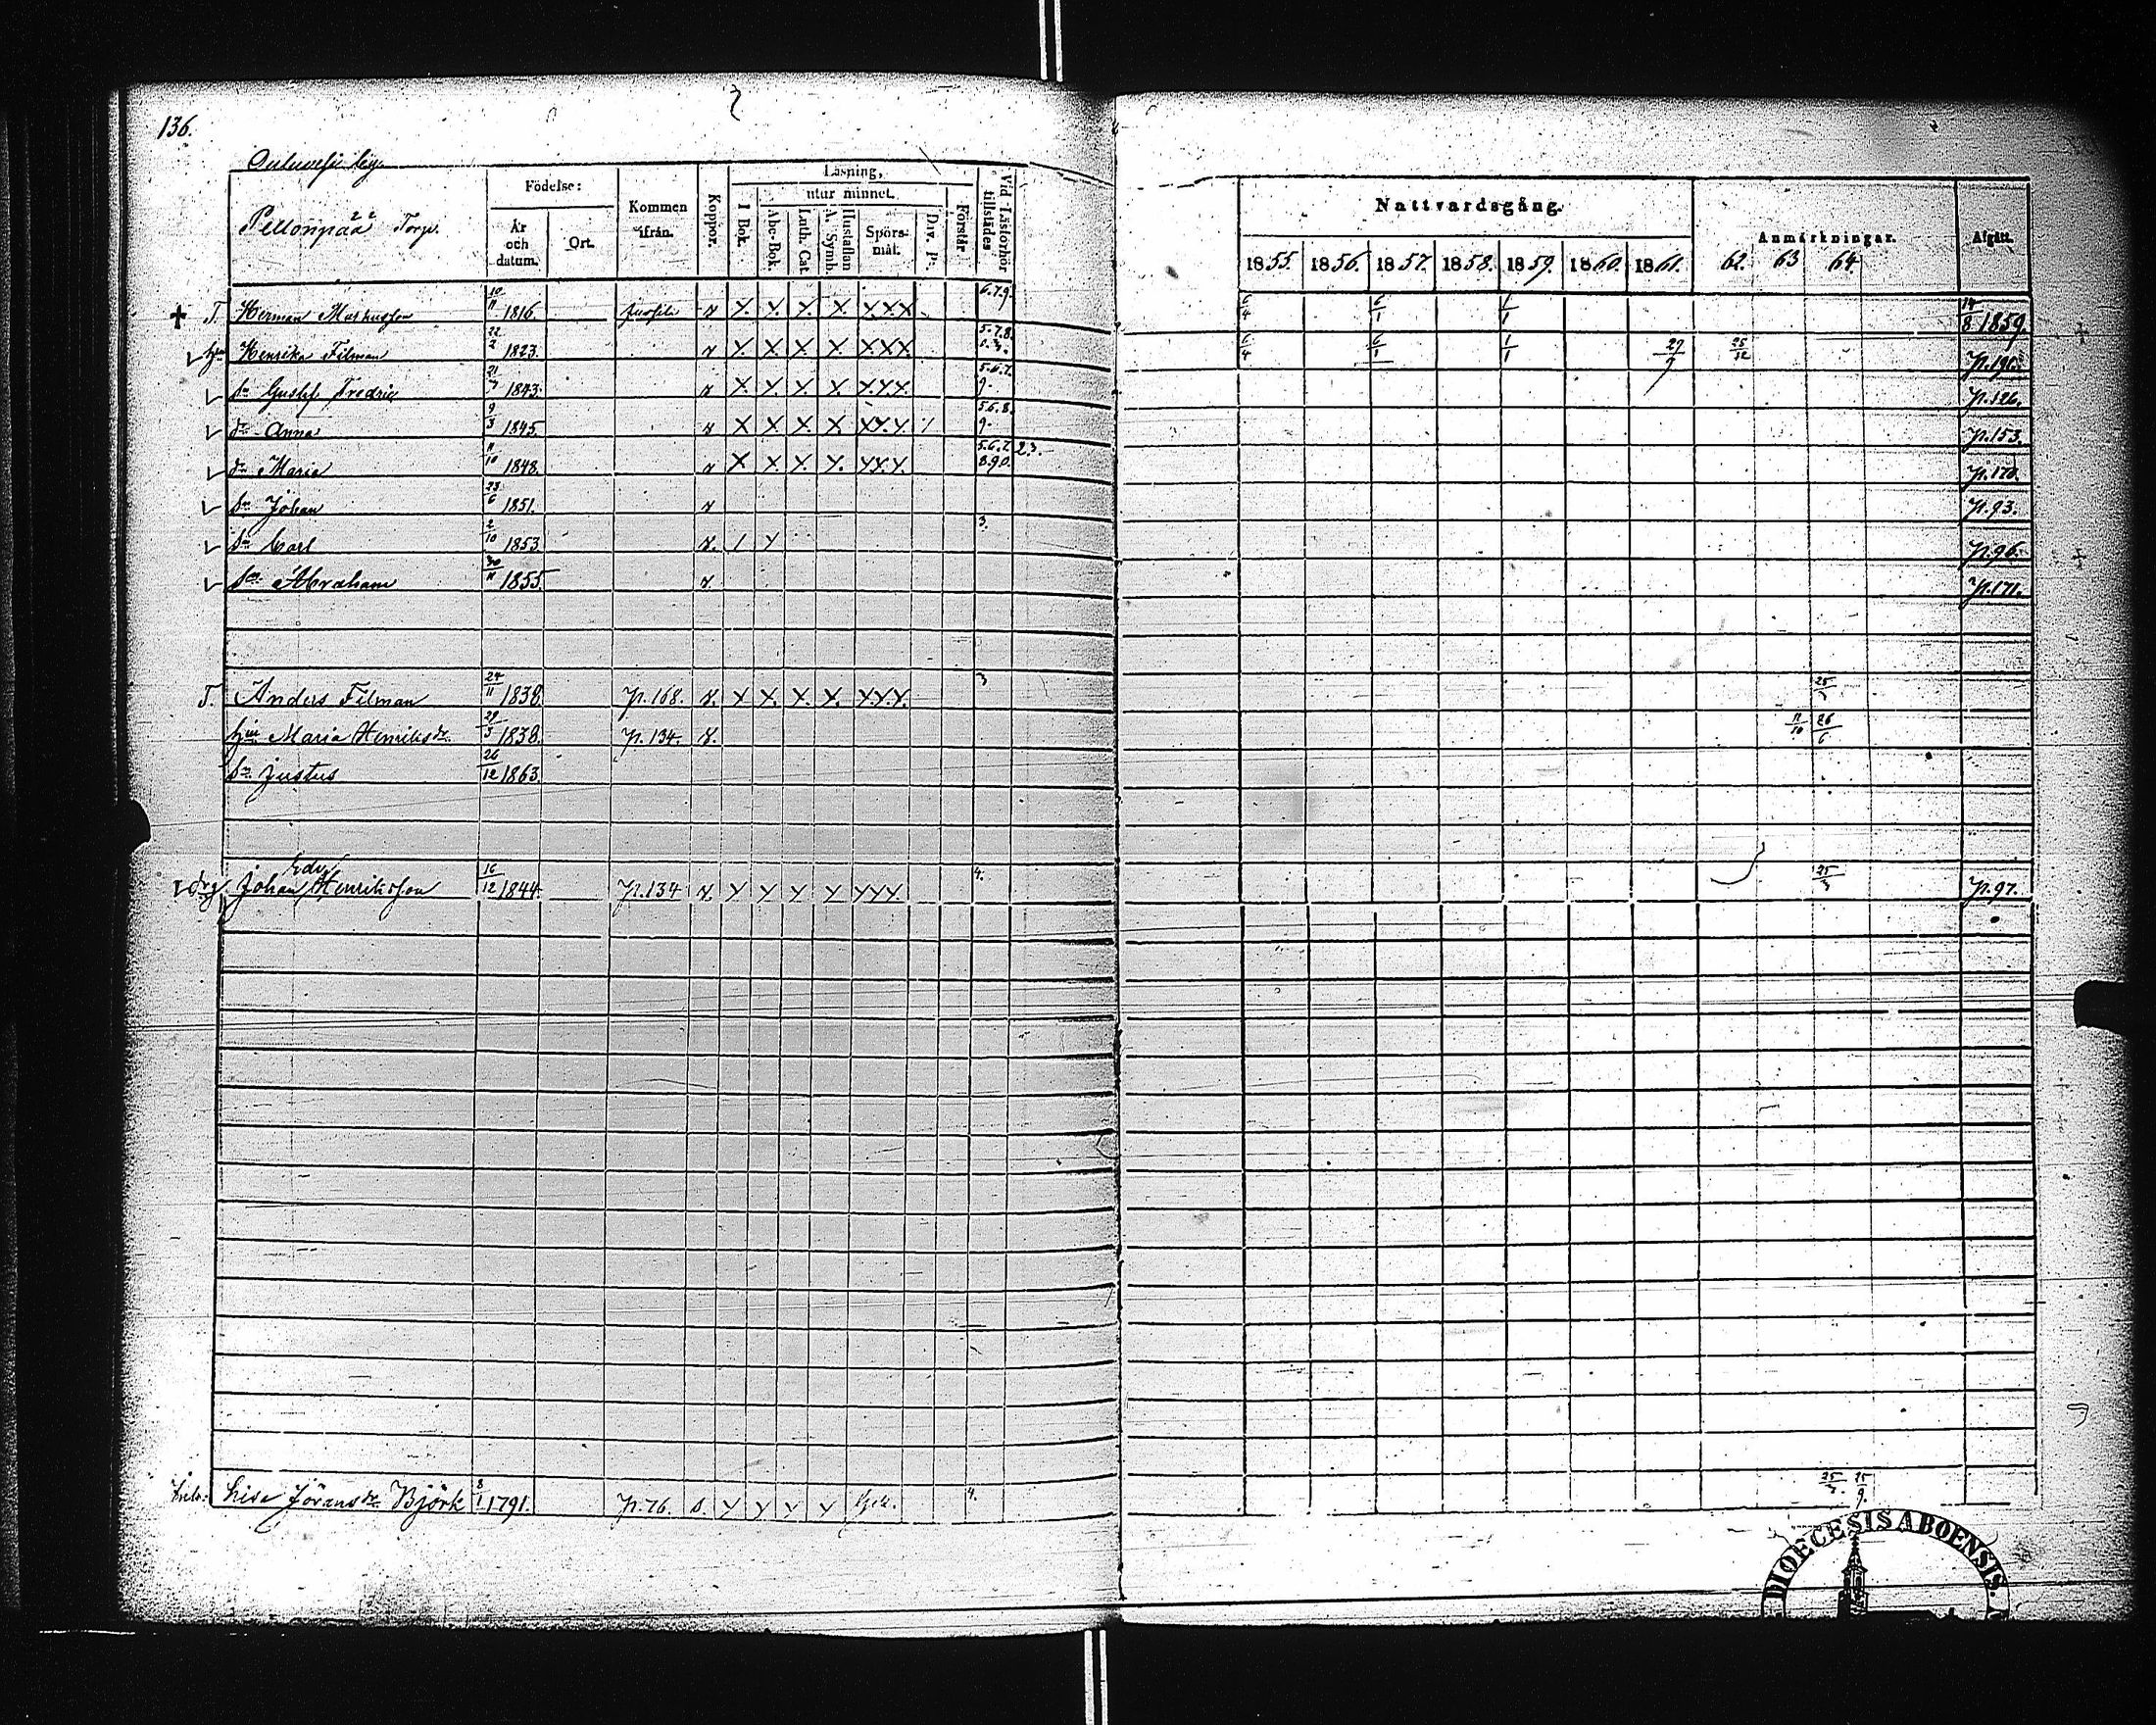 136.
Pellonpää Torp.
Födelse:
År och datum.
Ort.
Kommen ifrån.
Koppor.
Läsning,
I Bok.
utur minnet.
Abc-Bok.
Luth. Cat.
Hustaflan A. Symb.
Spörsmål.
Div. Ps.
Förstår
Vid Läsförhör tillstädes
Nattvardsgång.
1855. 1856. 1857. 1858. 1859. 1860. 1861.
Anmärkningar.
62. 63 64.
Afgått.
T. Herman Markusson 10/11 1816. X. X. X. X. XXX 6.7.9. 6/4 6/1 1/1 14/8 1859.
Henrika Filman 22/2 1823. X. X X X. XXX 5.7.8. 0.3. 6/4 6/1 1/1 25/12
Sn Gustaf Fredric 1843. X. X. X. X. XXX. 5.6.7. 9. p.126.
dr Anna 9/3 1845. X X X. X. XX.X 5.6.8. 9. p.153.
dr Maria 11/10 1848. X X X. X. XXX. 5.6.7. 8.9.0. 2.3.
Sn Johan 23/6 1851. p.93.
Sn Carl 2/10 1853. 3. p.96.
Sn Abraham 30/11 1855. p.171.
T. Anders Filman 24/11 1838. p.168. X X. X. X. XXX. 3
hu Maria Henriksdr 29/5 1838. p.134. 11/10 26/6
Sn Justus 26/12 1863.
Johan Henriksson 16/12 1844. p.134 X X X X XXX. 4. 25/3 p.97.
Lisa Jöransdr Björk 8/1 1791. p.76. s. X X X X 4. 25/3. 25/9.
DIOECESIS ABOENSIS.